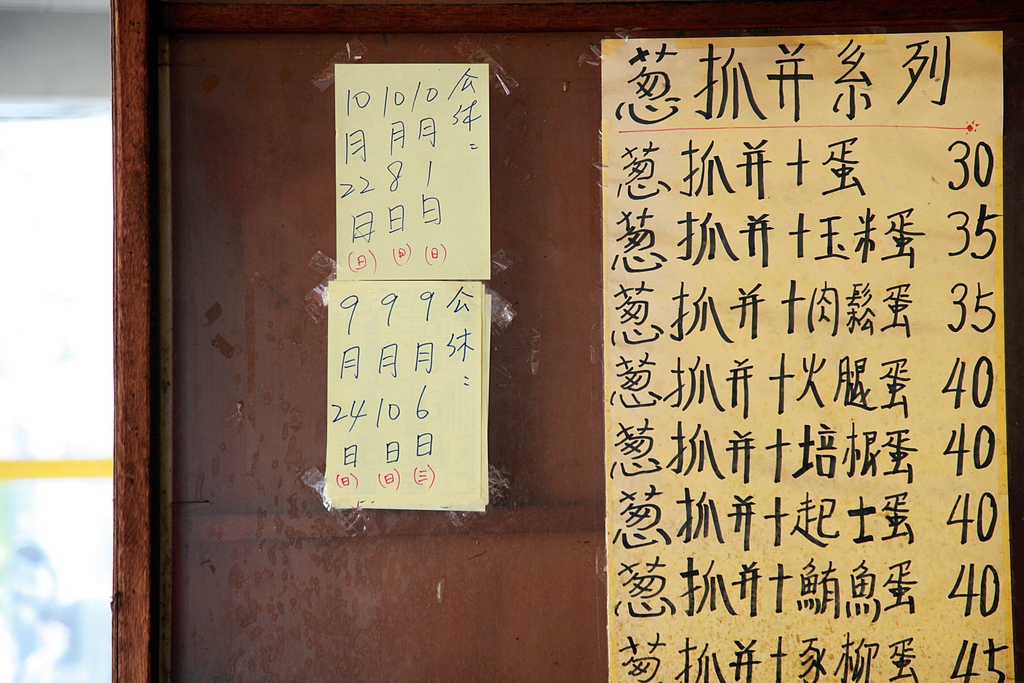 公休：
10月1日(日)
10月8日(日)
10月22日(日)
公休：
9月6日(三)
9月10日(日)
9月24日(日)
葱抓并系列
葱抓并+蛋 30
葱抓并+玉米蛋 35
葱抓并+肉鬆蛋 35
葱抓并+火腿蛋 40
葱抓并+培根蛋 40
葱抓并+起士蛋 40
葱抓并+鮪魚蛋 40
葱抓并+豕柳蛋 45